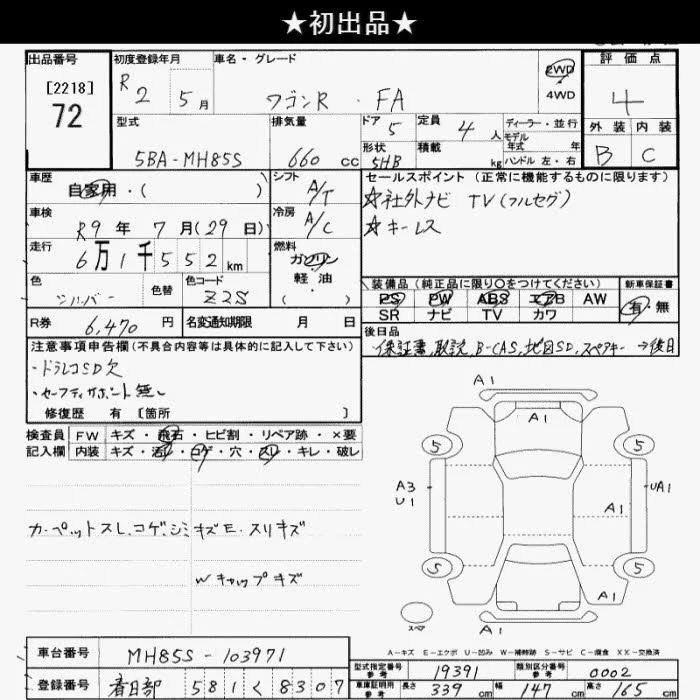 ★初出品★
出品番号 初度登録年月 車名・グレード 評価点
[2218] R2 5月 ワゴンR ・ FA 2WD 4
72 4WD
型式 排気量 ドア 5 定員 4人 ディーラー・並行 外装 内装
モデル年式 年
5BA-MH85S 660cc 形状 5HB 積載 kg ハンドル 左・右 B C
車歴 シフト セールスポイント(正常に機能するものに限ります)
自家用・( ) A/T ☆社外ナビ TV(フルセグ)
車検 冷房 ☆キーレス
R9年7月(29日) A/C
走行 燃料
6万1千552km ガソリン
色 色替 色コード 軽油 装備品(純正品に限り○をつけてください) 新車保証書
シルバー Z2S ( ・ ) PS PW ABS エアB AW 有・無
R券 6,470円 名変通知期限 月 日 SR ナビ TV カワ
後日品
注意事項申告欄(不具合内容等は具体的に記入して下さい) ・保証書、取説、B-CAS、地図SD、スペアキー→後日
・ドラレコSD欠
・セーフティサポート無し
修復歴 有 〔箇所 〕
検査員 FW キズ・飛石・ヒビ割・リペア跡・×要
記入欄 内装 キズ・汚れ・コゲ・穴・スリ・キレ・破レ
カーペットスレ.コゲ.シミキズE.スリキズ
Wキャップキズ
A1
A1
5 5
A3 UA1
U1 A1
5 5
A1
スペア A1
A-キズ E-エクボ U-凹み W-補修跡 S-サビ C-腐食 XX-交換済
車台番号 MH85S-103971 型式指定番号 参考 19391 類別区分番号 参考 0002
登録番号 春日部 581 く 8307 車庫証明用 参考 長さ 339cm 幅 147cm 高さ 165cm